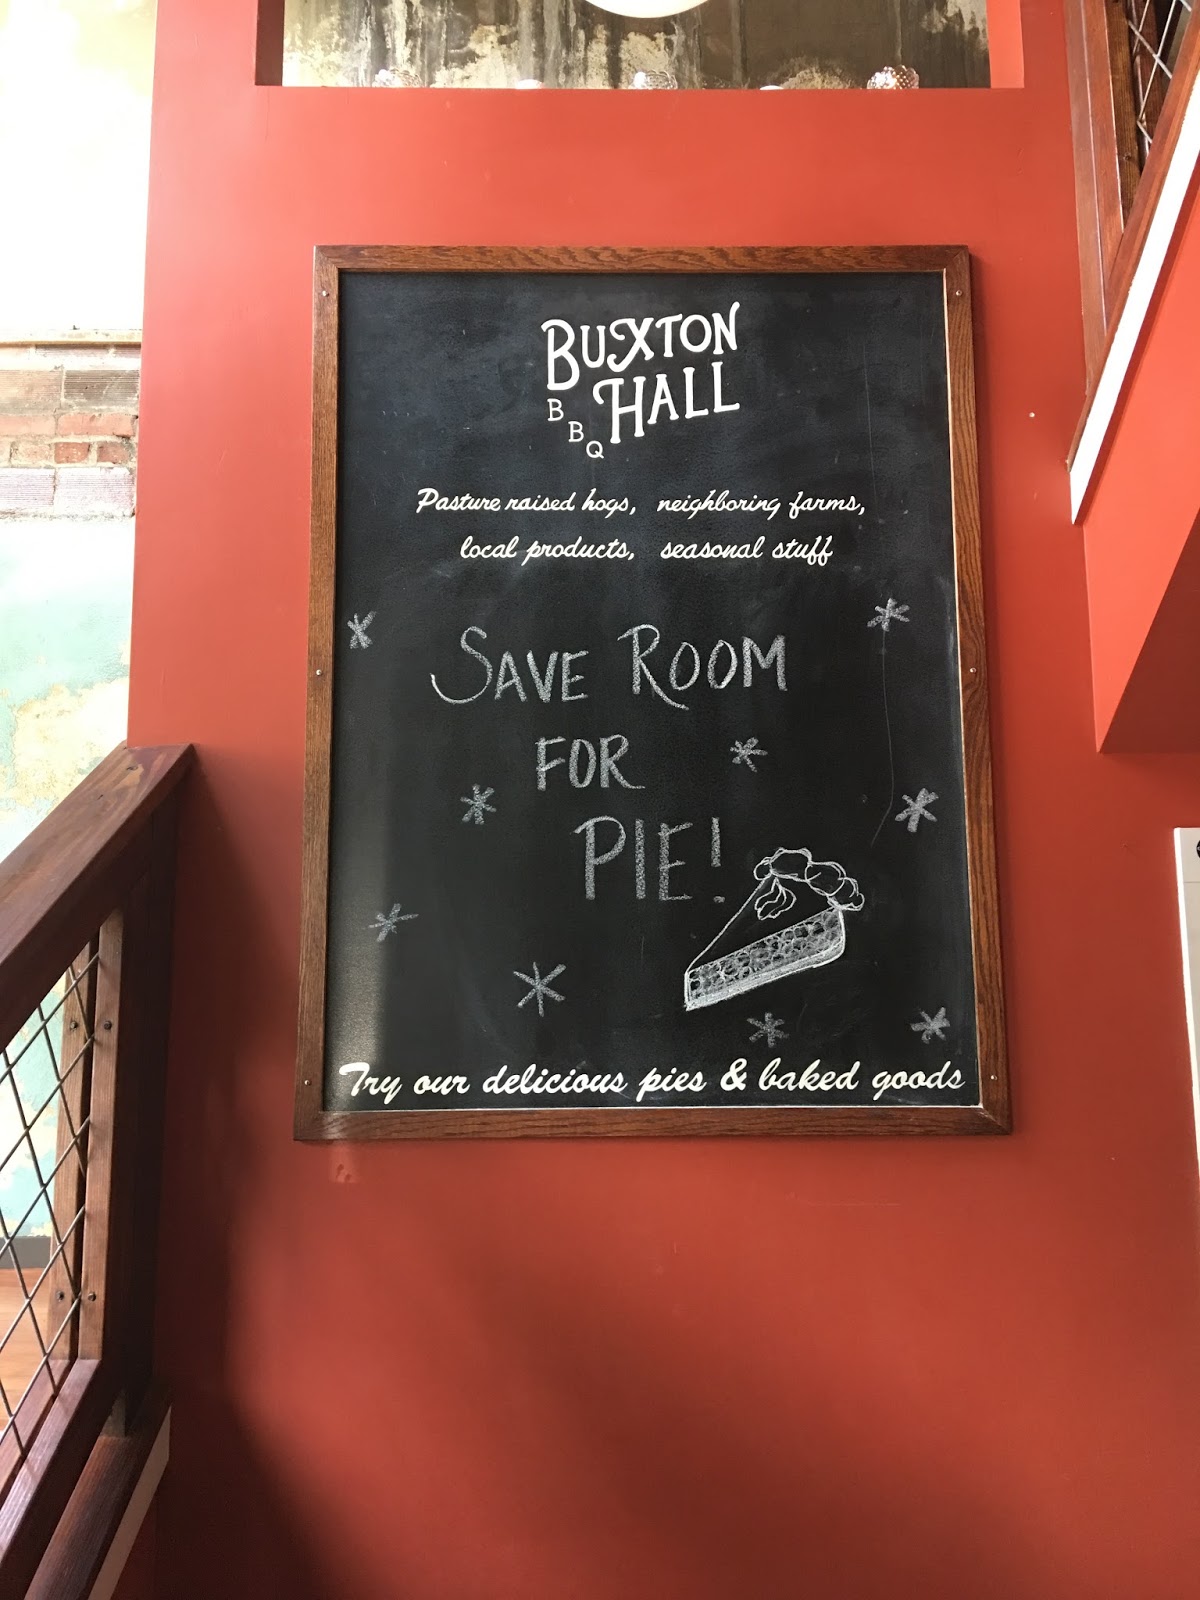 BUXTON
HALL
BBQ
Pasture raised hogs, neighboring farms,
local products, seasonal stuff
SAVE ROOM
FOR
PIE!
Try our delicious pies & baked goods